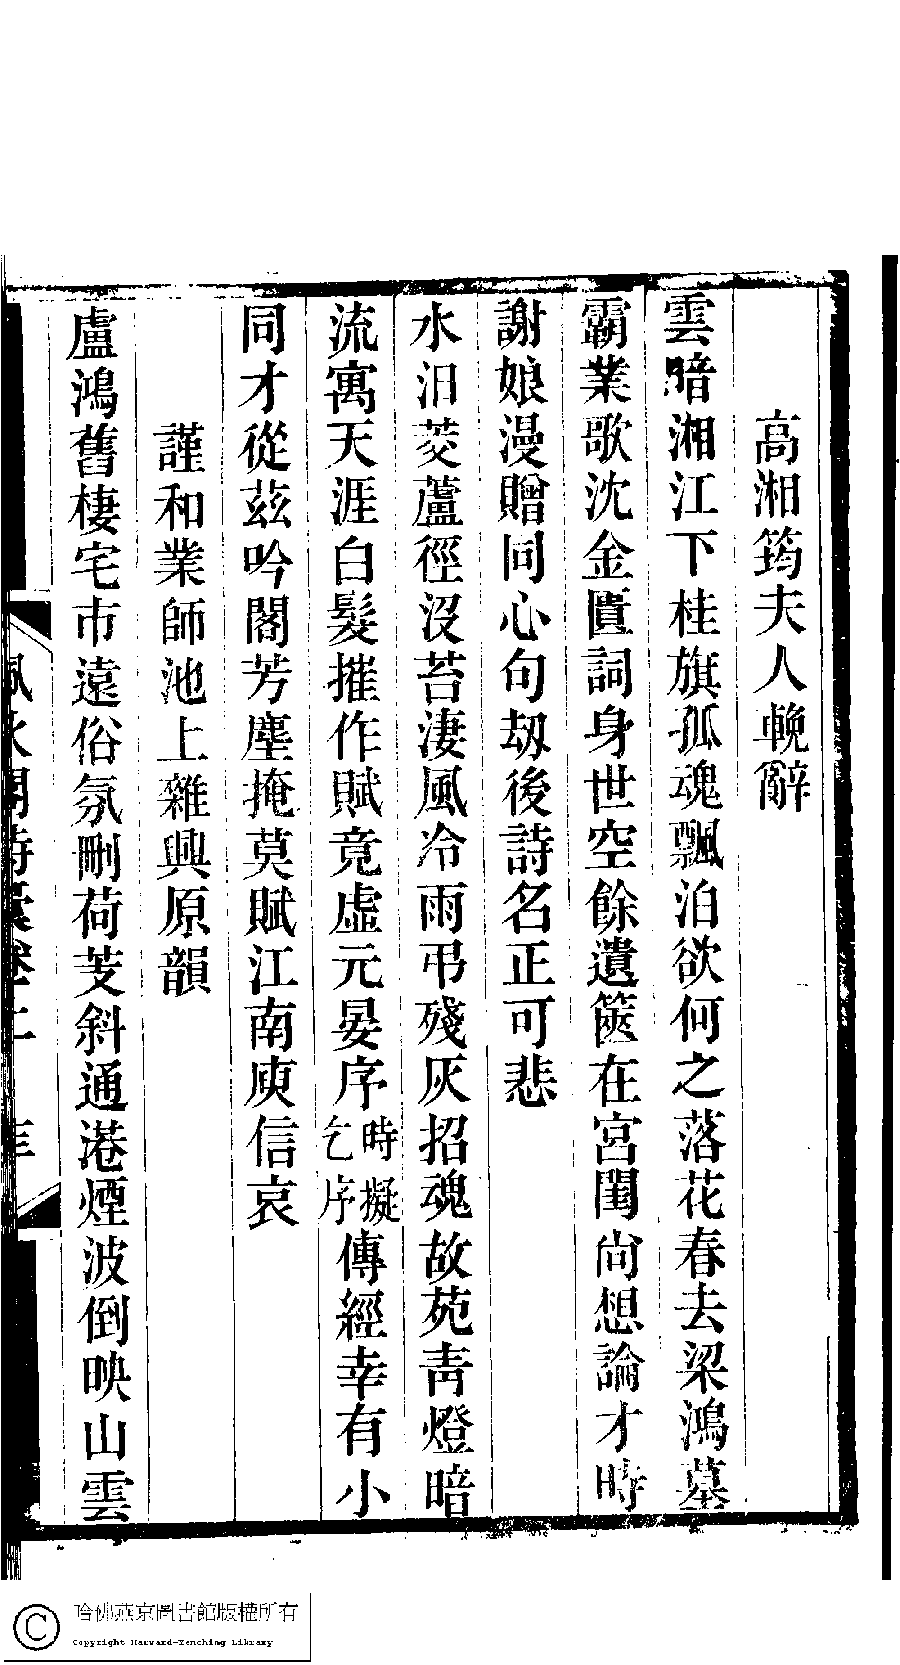 高湘筠夫人輓辭
雲暗湘江下桂旗孤魂飄泊欲何之落花春去梁鴻墓
霸業歌沈金匱詞身世空餘遺篋在宮閨尚想論才時
謝娘漫贈同心句劫後詩名正可悲
水汨菱蘆徑沒苔淒風冷雨弔殘灰招魂故苑靑燈暗
流寓天涯白髮摧作賦竟虛元晏序時擬乞序傳經幸有小
同才從茲吟閣芳塵掩莫賦江南庾信哀
謹和業師池上雜興原韻
盧鴻舊棲宅市遠俗氛刪荷芰斜通港煙波倒映山雲
哈佛燕京圖書館版權所有
Copyright Harvard-Yenching Library